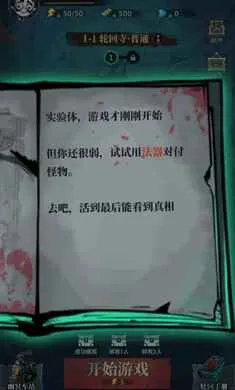 50/50
500
0
1-1 轮回寺·普通
1
实验体，游戏才刚刚开始
但你还很弱，试试用法器对付
怪物。
去吧，活到最后能看到真相
开始游戏
幽冥车站